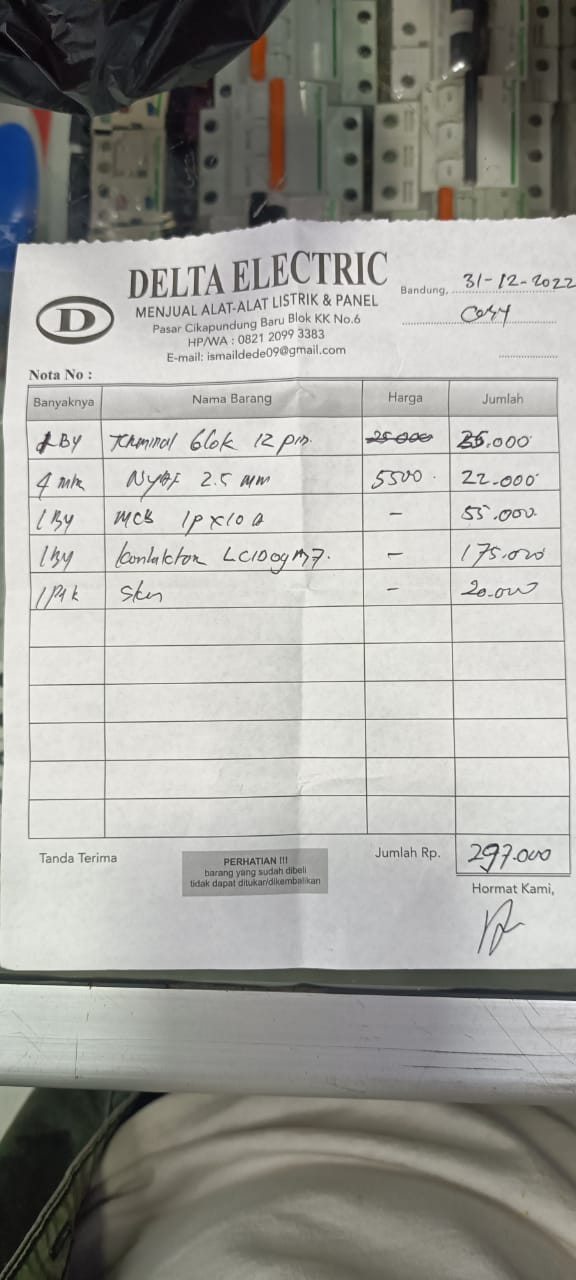 DELTA ELECTRIC
MENJUAL ALAT-ALAT LISTRIK & PANEL
Pasar Cikapundung Baru Blok KK No.6
HP/WA : 0821 2099 3383
E-mail: ismaildede09@gmail.com
D
Bandung, 31-12-2022
Nota No :
Banyaknya Nama Barang Harga Jumlah
1 By Terminal blok 12 pin. 25.000 25.000
4 mtr NYAF 2.5 mm 5500 22.000
1 By MCB 1P x 10 A - 55.000
1 By Kontaktor LC1D09M7. - 175.000
1 Pak - 20.000
Tanda Terima
PERHATIAN !!!
barang yang sudah dibeli
tidak dapat ditukar/dikembalikan
Jumlah Rp. 297.000
Hormat Kami,